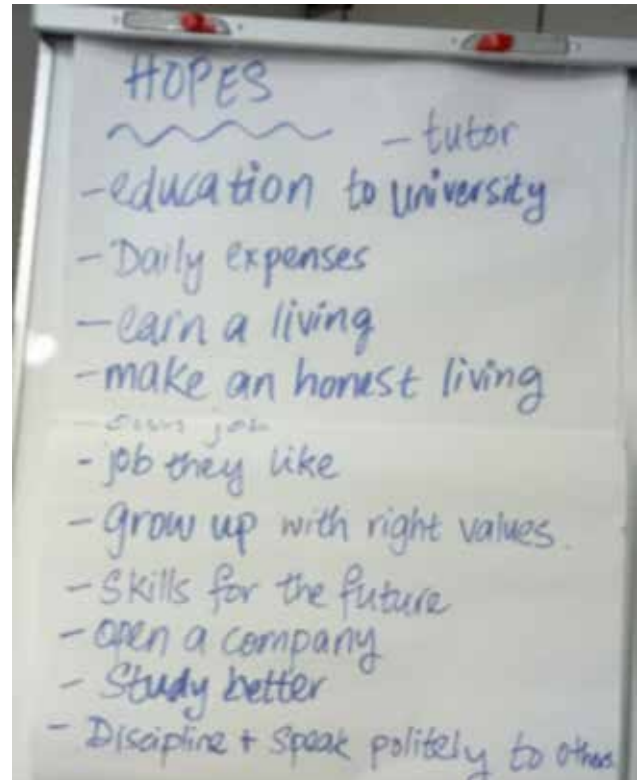 HOPES
- tutor
- education to university
- Daily expenses
- earn a living
- make an honest living
- own job
- job they like
- grow up with right values.
- Skills for the future
- open a company
- Study better
- Discipline + Speak politely to others